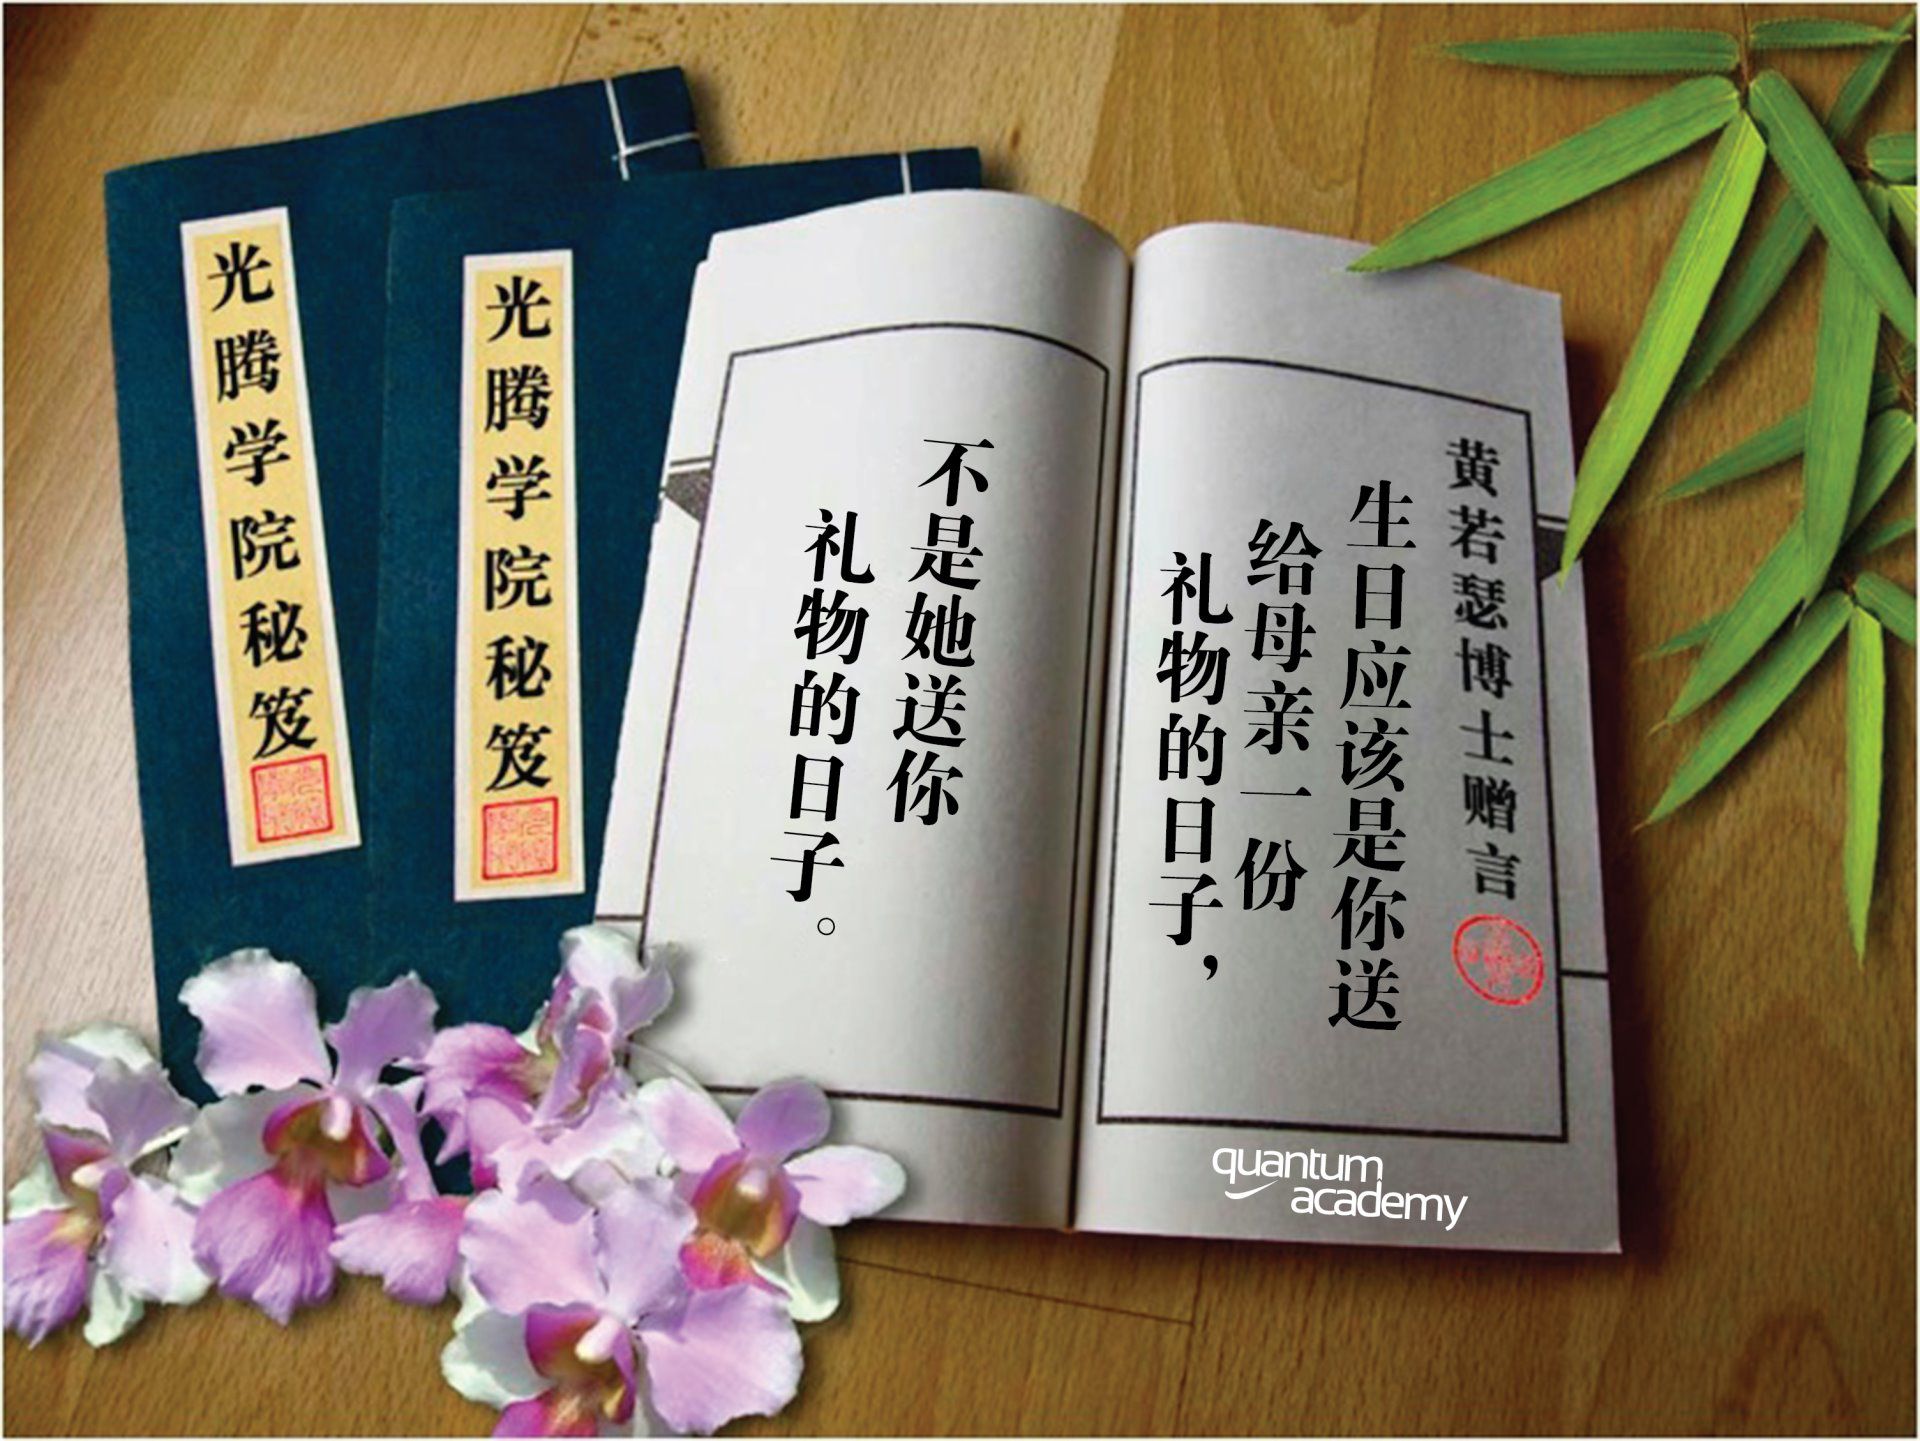 光腾学院秘笈
光腾学院秘笈
黄若瑟博士赠言
生日应该是你送
给母亲一份
礼物的日子，
不是她送你
礼物的日子。
quantum
academy